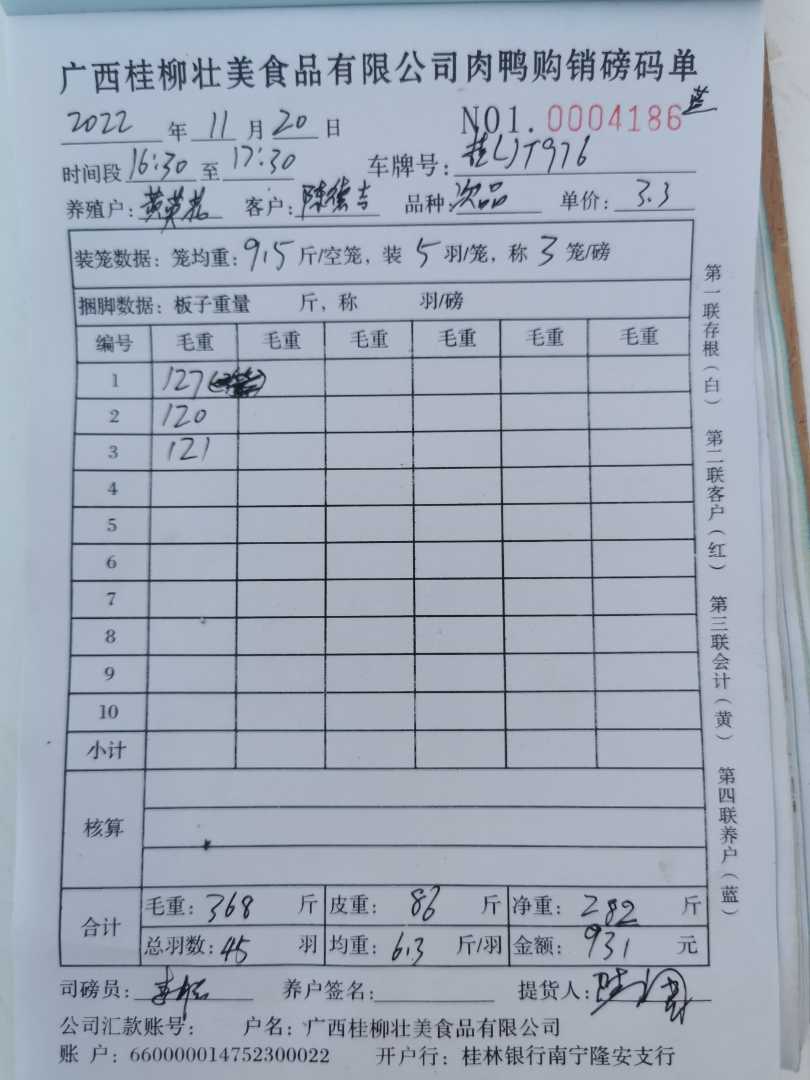 广西桂柳壮美食品有限公司肉鸭购销磅码单
2022 年 11 月 20 日 NO1. 0004186 蓝
时间段 16:30 至 17:30 车牌号:
养殖户: 黄英 客户: 陈德吉 品种: 次品 单价: 3.3
装笼数据: 笼均重: 9.5 斤/空笼, 装 5 羽/笼, 称 3 笼/磅
捆脚数据: 板子重量 斤, 称 羽/磅
编号 毛重 毛重 毛重 毛重 毛重 毛重
1 127
2 120
3 121
4
5
6
7
8
9
10
小计
核算
合计 毛重: 368 斤 皮重: 86 斤 净重: 282 斤
总羽数: 45 羽 均重: 6.3 斤/羽 金额: 931 元
司磅员: 养户签名: 提货人:
公司汇款账号: 户名: 广西桂柳壮美食品有限公司
账 户: 660000014752300022 开户行: 桂林银行南宁隆安支行
第一联存根(白) 第二联客户(红) 第三联会计(黄) 第四联养户(蓝)